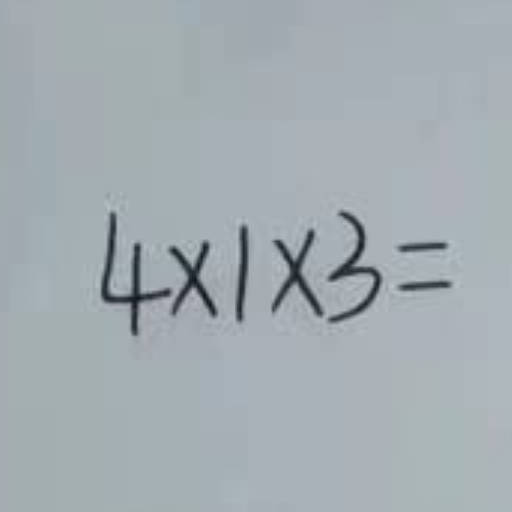 4×1×3=